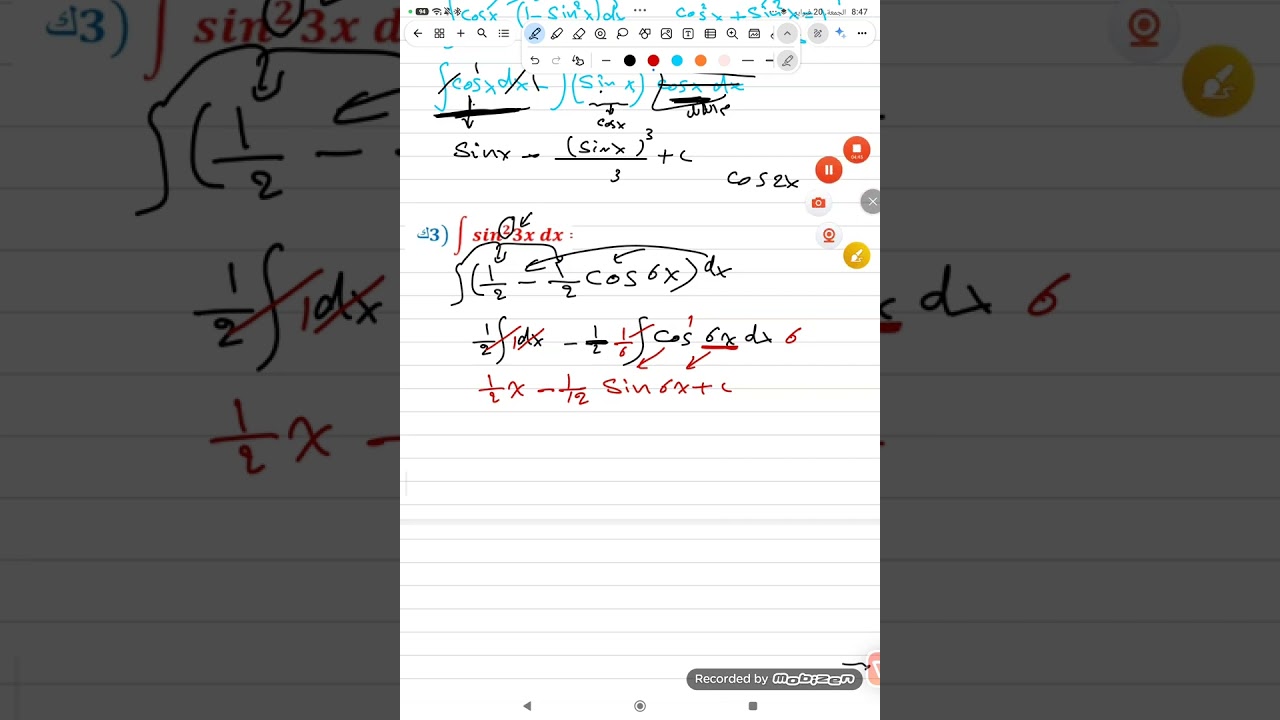 8:47 الجمعة، 20 فبراير
cosx (1 - sin²x)dx cos²x + sin²x = 1
∫ cosx dx - ∫ (sin x)² cosx dx
cosx
sinx - (sinx)³/3 + c
cos2x
ك3) ∫ sin² 3x dx :
∫ (1/2 - 1/2 cos 6x) dx
1/2 ∫ 1dx - 1/2 1/6 ∫ cos 6x dx 6
1/2 x - 1/12 sin 6x + c
Recorded by mobizen